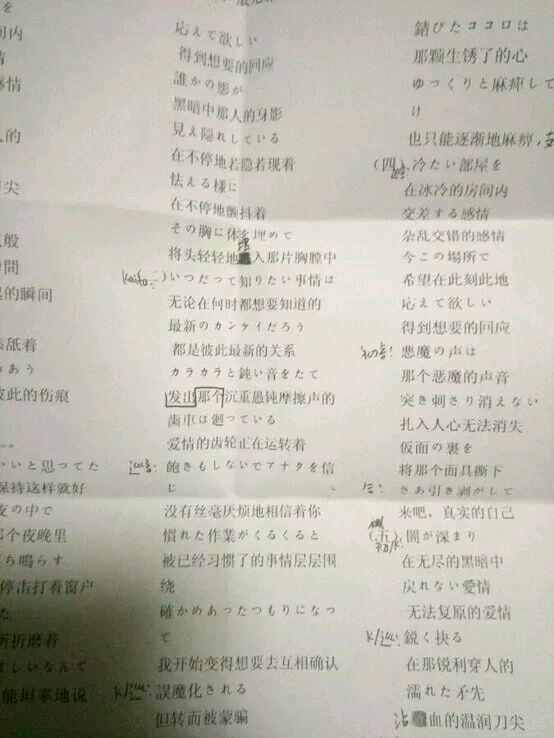 を
间内
情
感情
人的
刀尖
般
瞬間
起的瞬间
舔着
あう
彼此的伤痕
いいと思ってた
保持这样就好
夜の中で
那个夜晚里
ち鳴らす
停击打着窗户
た
所折磨着
ほしいなんて
能坦率地说
応えて欲しい
得到想要的回应
誰かの影が
黑暗中那人的身影
見え隠れしている
在不停地若隐若现着
怯える様に
在不停地颤抖着
その胸に体を埋めて
将头轻轻地埋入那片胸膛中
Kaito: (二) いつだって知りたい事情は
无论在何时都想要知道的
最新のカンケイだろう
都是彼此最新的关系
カラカラと鈍い音をたて
发出那个沉重愚钝摩擦声的
歯車は廻っている
爱情的齿轮正在运转着
飽きもしないでアナタを信
じ
没有丝毫厌烦地相信着你
慣れた作業がくるくると
被已经习惯了的事情层层围
绕
確かめあったつもりになっ
て
我开始变得想要去互相确认
誤魔化される
但转而被蒙骗
錆びたココロは
那颗生锈了的心
ゆっくりと麻痺して
け
也只能逐渐地麻痹,
(四) 冷たい部屋を
在冰冷的房间内
交差する感情
杂乱交错的感情
今この場所で
希望在此刻此地
応えて欲しい
得到想要的回应
初音: 悪魔の声は
那个恶魔的声音
突き刺さり消えない
扎入人心无法消失
仮面の裏を
将那个面具撕下
合: さあ引き剥がして
来吧，真实的自己
(五) 闇が深まり
在无尽的黑暗中
戻れない愛情
无法复原的爱情
鋭く抉る
在那锐利穿人的
濡れた矛先
沾血的温润刀尖